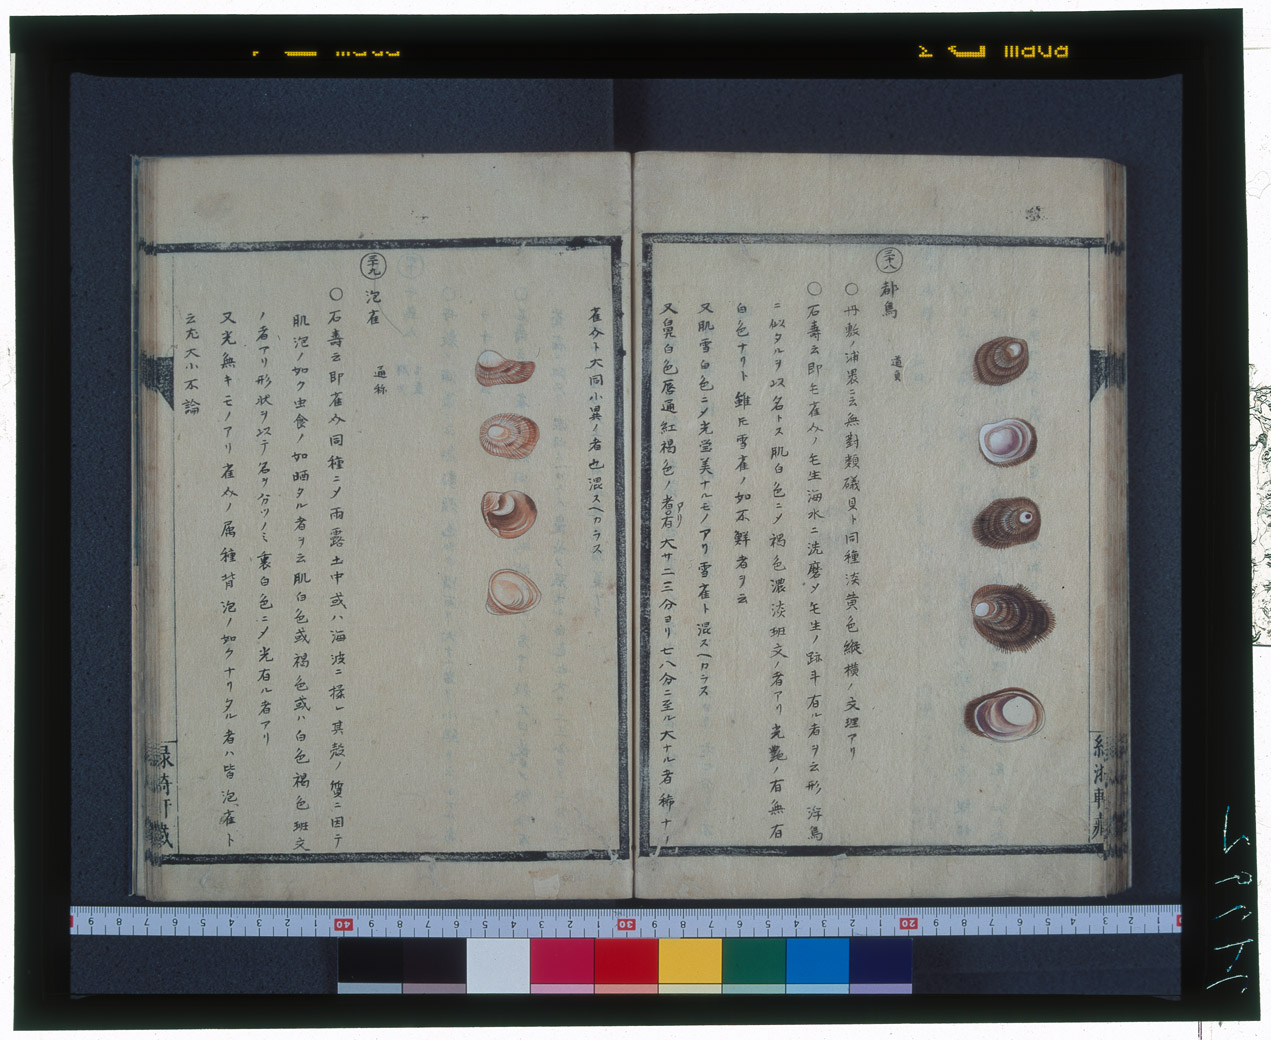 三十八
都鳥
道貝
〇丹敷ノ浦裏ニ云無對類礒貝ト同種淡黄色縱横ノ文理アリ
〇石壽云即モ雀介ノモ生海水ニ洗磨メモ生ノ跡斗有ル者ヲ云形浮鳥
ニ似タルヲ以名トス肌白色ニメ褐色濃淡班文ノ者アリ光艶ノ有無有
白色ナリト雖モ雪雀ノ如不鮮者ヲ云
又肌雪白色ニメ光瑩美ナルモノアリ雪雀ト混スヘカラス
又鼻白色唇通紅褐色ノ者有アリ大サ二三分ヨリ七八分ニ至ル大ナル者稀ナリ
雀介ト大同小異ノ者也混スヘカラス
三十九
泡雀
通称
〇石壽云即雀介同種ニメ雨露土中或ハ海波ニ揉レ其殻ノ質ニ因テ
肌泡ノ如ク虫食ノ如晒タル者ヲ云肌白色或褐色或ハ白色褐色班文
ノ者アリ形状ヲ以テ名ヲ分ツノミ裏白色ニメ光有ル者アリ
又光無キモノアリ雀介ノ属種背泡ノ如クナリタル者ハ皆泡雀ト
云尤大小不論